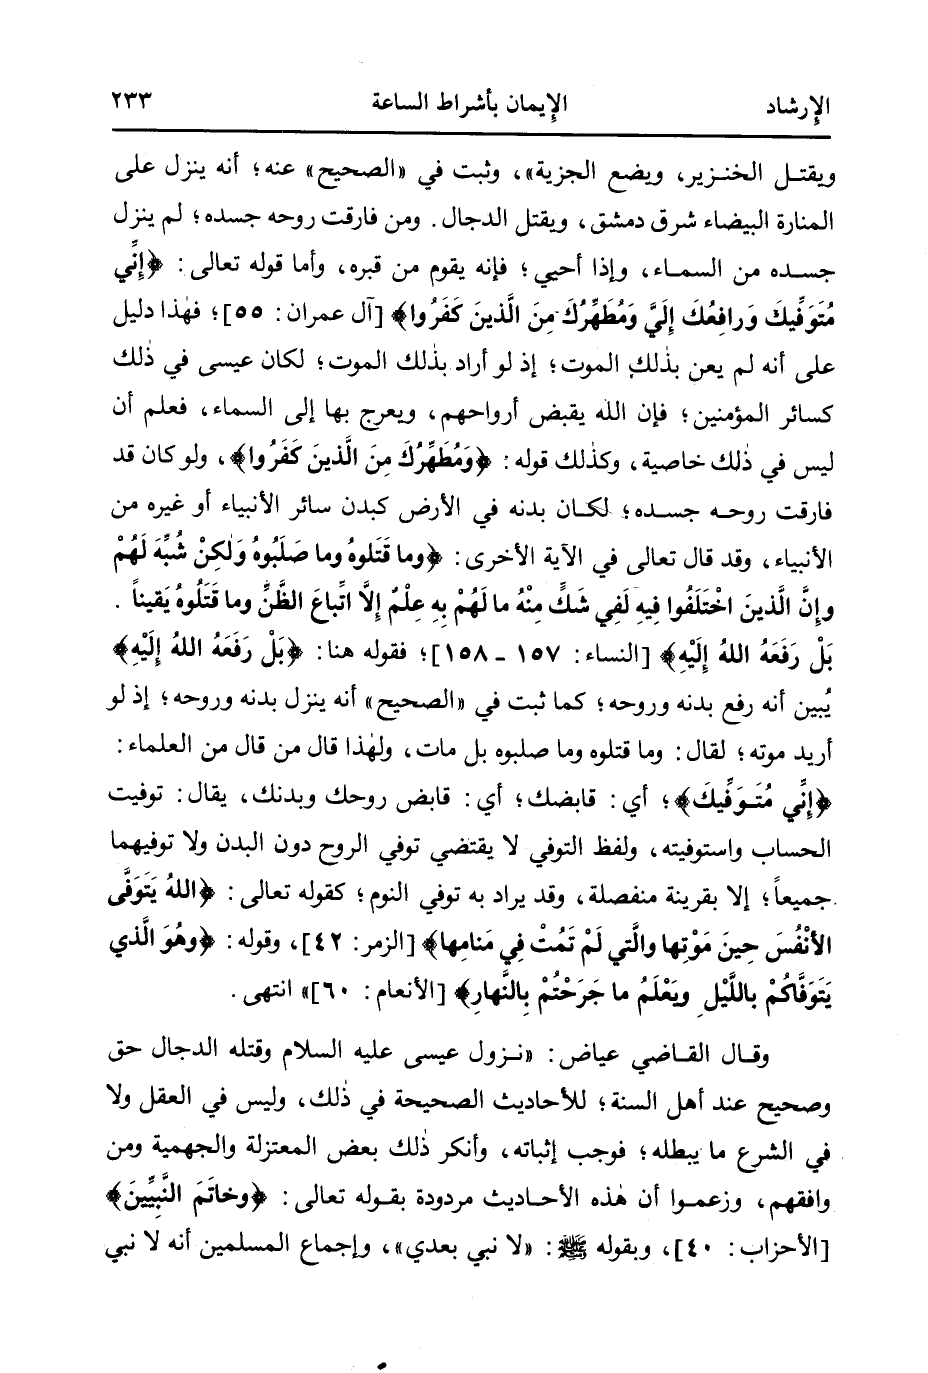 الإرشاد الإيمان بأشراط الساعة ٢٣٣
ويقتـل الخنـزير، ويضع الجزية»، وثبت في «الصحيح» عنه؛ أنه ينزل على
المنارة البيضاء شرق دمشق، ويقتل الدجال. ومن فارقت روحه جسده؛ لم ينزل
جسـده من السمـاء، وإذا أحيي؛ فإنه يقوم من قبره، وأما قوله تعالى: ﴿إِنِّي
مُتَوَفِّيكَ وَرافِعُكَ إِلَيَّ وَمُطَهِّرُكَ مِنَ الَّذينَ كَفَرُوا﴾ [آل عمران: ٥٥]؛ فهٰذا دليل
على أنه لم يعن بذٰلك الموت؛ إذ لو أراد بذٰلك الموت؛ لكان عيسى في ذٰلك
كسائر المؤمنين؛ فإن الله يقبض أرواحهم، ويعرج بها إلى السماء، فعلم أن
ليس في ذٰلك خاصية، وكذٰلك قوله: ﴿وَمُطَهِّرُكَ مِنَ الَّذينَ كَفَرُوا﴾، ولو كان قد
فارقت روحـه جسـده؛ لكـان بدنه في الأرض كبدن سائر الأنبياء أو غيره من
الأنبياء، وقد قال تعالى في الآية الأخرى: ﴿وما قَتَلوهُ وما صَلَبُوهُ وَلٰكِنْ شُبِّهَ لَهُمْ
وإنَّ الَّذينَ اخْتَلَفُوا فيهِ لَفِي شَكٍّ مِنْهُ ما لَهُمْ بِهِ عِلْمٌ إلَّا اتِّباعَ الظَّنِّ وما قَتَلُوهُ يَقيناً .
بَلْ رَفَعَهُ اللهُ إِلَيْهِ﴾ [النساء: ١٥٧ ـ ١٥٨]؛ فقوله هنا: ﴿بَلْ رَفَعَهُ اللهُ إِلَيْهِ﴾
يُبين أنه رفع بدنه وروحه؛ كما ثبت في «الصحيح» أنه ينزل بدنه وروحه؛ إذ لو
أريد موته؛ لقال: وما قتلوه وما صلبوه بل مات، ولهٰذا قال من قال من العلماء:
﴿إِنِّي مُتَـوَفِّيكَ﴾؛ أي: قابضك؛ أي: قابض روحك وبدنك، يقال: توفيت
الحساب واستوفيته، ولفظ التوفي لا يقتضي توفي الروح دون البدن ولا توفيهما
جميعاً؛ إلا بقرينة منفصلة، وقد يراد به توفي النوم؛ كقوله تعالى: ﴿اللهُ يَتَوَفَّى
الأنْفُسَ حِينَ مَوْتِها والَّتي لَمْ تَمُتْ فِي مَنامِها﴾ [الزمر: ٤٢]، وقوله: ﴿وهُوَ الَّذي
يَتَوَفَّاكُمْ بِاللَّيْلِ ويَعْلَمُ ما جَرَحْتُمْ بِالنَّهارِ﴾ [الأنعام: ٦٠]» انتهى.
وقـال القـاضي عياض: «نـزول عيسى عليه السلام وقتله الدجال حق
وصحيح عند أهل السنة؛ للأحاديث الصحيحة في ذٰلك، وليس في العقل ولا
في الشرع ما يبطله؛ فوجب إثباته، وأنكر ذٰلك بعض المعتزلة والجهمية ومن
وافقهم، وزعمـوا أن هٰذه الأحـاديث مردودة بقـوله تعالى: ﴿وخاتَمَ النَّبِيِّينَ﴾
[الأحزاب: ٤٠]، وبقوله ﷺ: «لا نبي بعدي»، وإجماع المسلمين أنه لا نبي